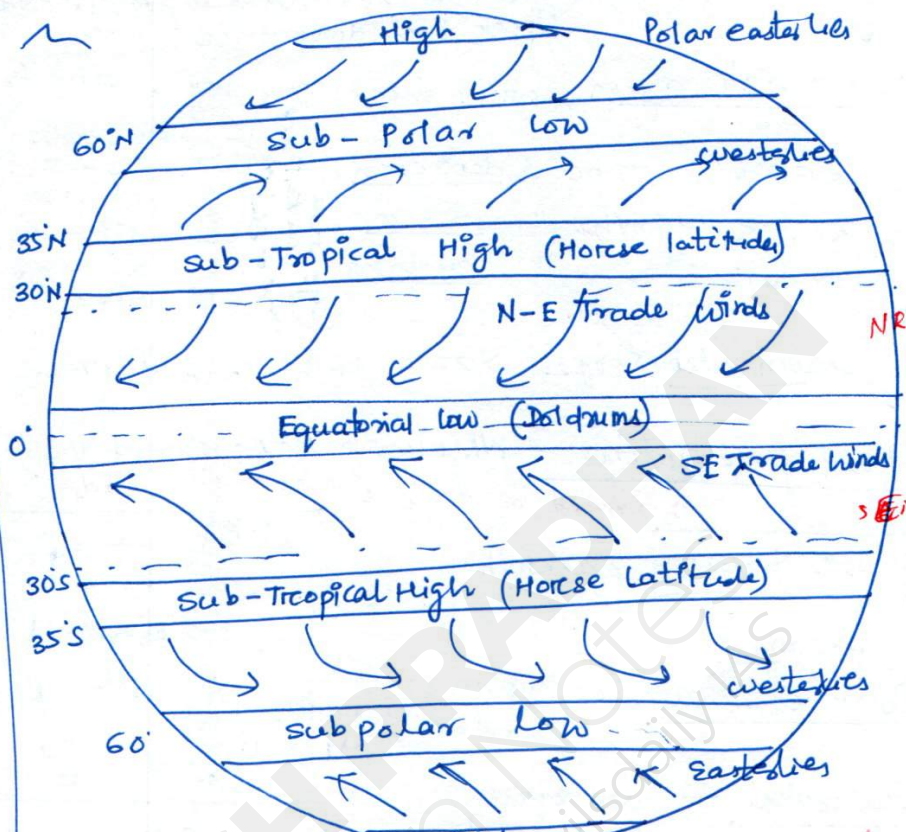 High
Polar easterlies
60°N
Sub-Polar Low
westerlies
35°N
Sub-Tropical High (Horse latitudes)
30°N
N-E Trade Winds
0°
Equatorial Low (Doldrums)
SE Trade Winds
30°S
Sub-Tropical High (Horse Latitude)
35°S
westerlies
60°
Subpolar Low
Easterlies
H PRADHAN
Notes